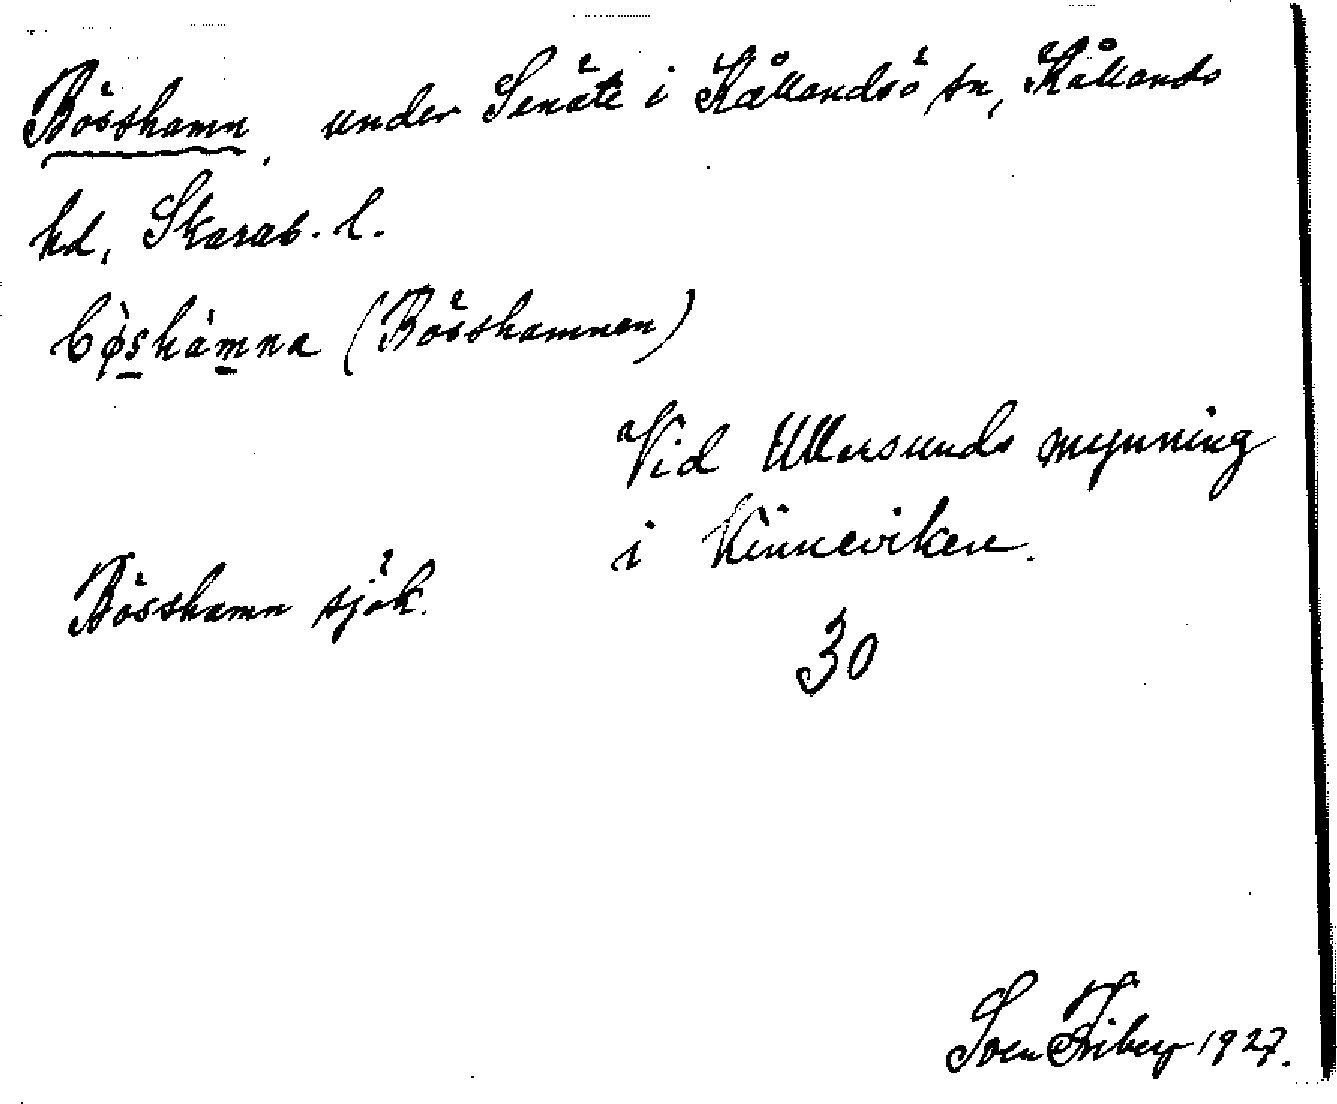 Bösshamn, under Senäte i Kållandsö sn, Kållands
hd, Skarab. l.
bø̀shámna (Bösshamnen)
Vid Ullersunds mynning
i Kinneviken.
Bösshamn sjök.
30
Sven Friberg 1927.